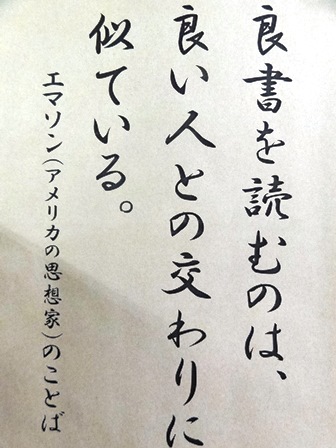 良書を読むのは、
良い人との交わりに
似ている。
エマソン(アメリカの思想家)のことば